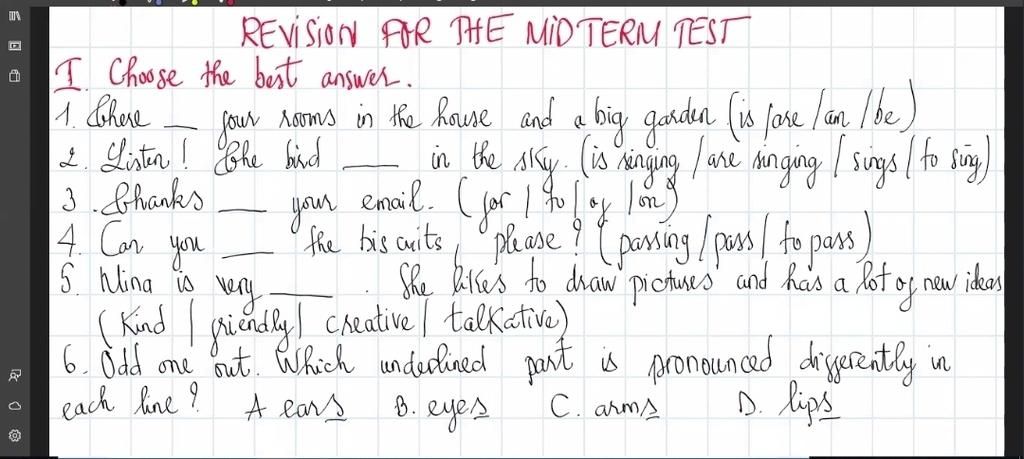 REVISION FOR THE MIDTERM TEST
I. Choose the best answer.
1. There __ four rooms in the house and a big garden (is/are/am/be)
2. Listen! The bird ___ in the sky. (is singing/are singing/sings/to sing)
3. Thanks ___ your email. (for/to/of/on)
4. Can you ___ the biscuits, please? (passing/pass/to pass)
5. Mina is very ____. She likes to draw pictures and has a lot of new ideas
(Kind/friendly/creative/talkative)
6. Odd one out. Which underlined part is pronounced differently in
each line? A ears B. eyes C. arms D. lips